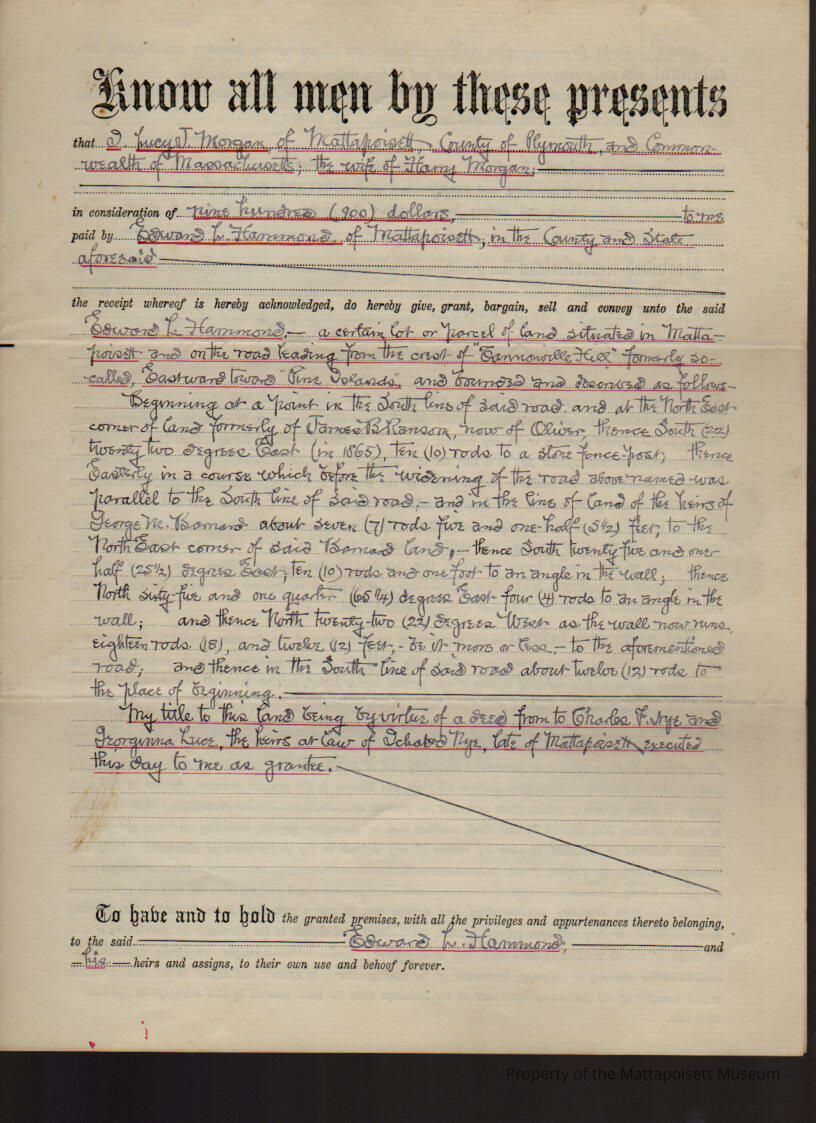 Know all men by these presents
that I Lucy T. Morgan of Mattapoisett County of Plymouth, and Common-
wealth of Massachusetts; the wife of Harry Morgan;
in consideration of nine hundred (900) dollars, to me
paid by Edward L. Hammond, of Mattapoisett, in the County and State
aforesaid
the receipt whereof is hereby acknowledged, do hereby give, grant, bargain, sell and convey unto the said
Edward L. Hammond,— a certain lot or parcel of land situated in Matta-
poisett and on the road leading from the crest of "Cannonville Hill" formerly so-
called, Eastward toward "Pine Islands", and bounded and described as follows-
Beginning at a point in the South line of said road and at the North East
corner of land formerly of James B. Ransom, now of Oliver, thence South (22)
twenty two degrees East (in 1865), ten (10) rods to a stone fence-post; thence
Easterly in a course which before the widening of the road above named was
parallel to the South line of said road,— and in the line of land of the heirs of
George M. Barnard about seven (7) rods five and one-half (5½) feet, to the
North East corner of said Barnard land,— thence South twenty five and one-
half (25½) degrees East, ten (10) rods and one foot to an angle in the wall; thence
North sixty-five and one quarter (65¼) degrees East four (4) rods to an angle in the
wall; and thence North twenty-two (22) degrees West as the wall now runs,
eighteen rods (18), and twelve (12) feet,- be it more or less,- to the aforementioned
road; and thence in the South line of said road about twelve (12) rods to
the place of beginning.
My title to this land being by virtue of a deed from to Charles F. Nye and
Georginna Luce, the heirs at law of Ichabod Nye, late of Mattapoisett executed
this day to me as grantee.
To have and to hold the granted premises, with all the privileges and appurtenances thereto belonging,
to the said Edward L. Hammond, and
his heirs and assigns, to their own use and behoof forever.
Property of the Mattapoisett Museum